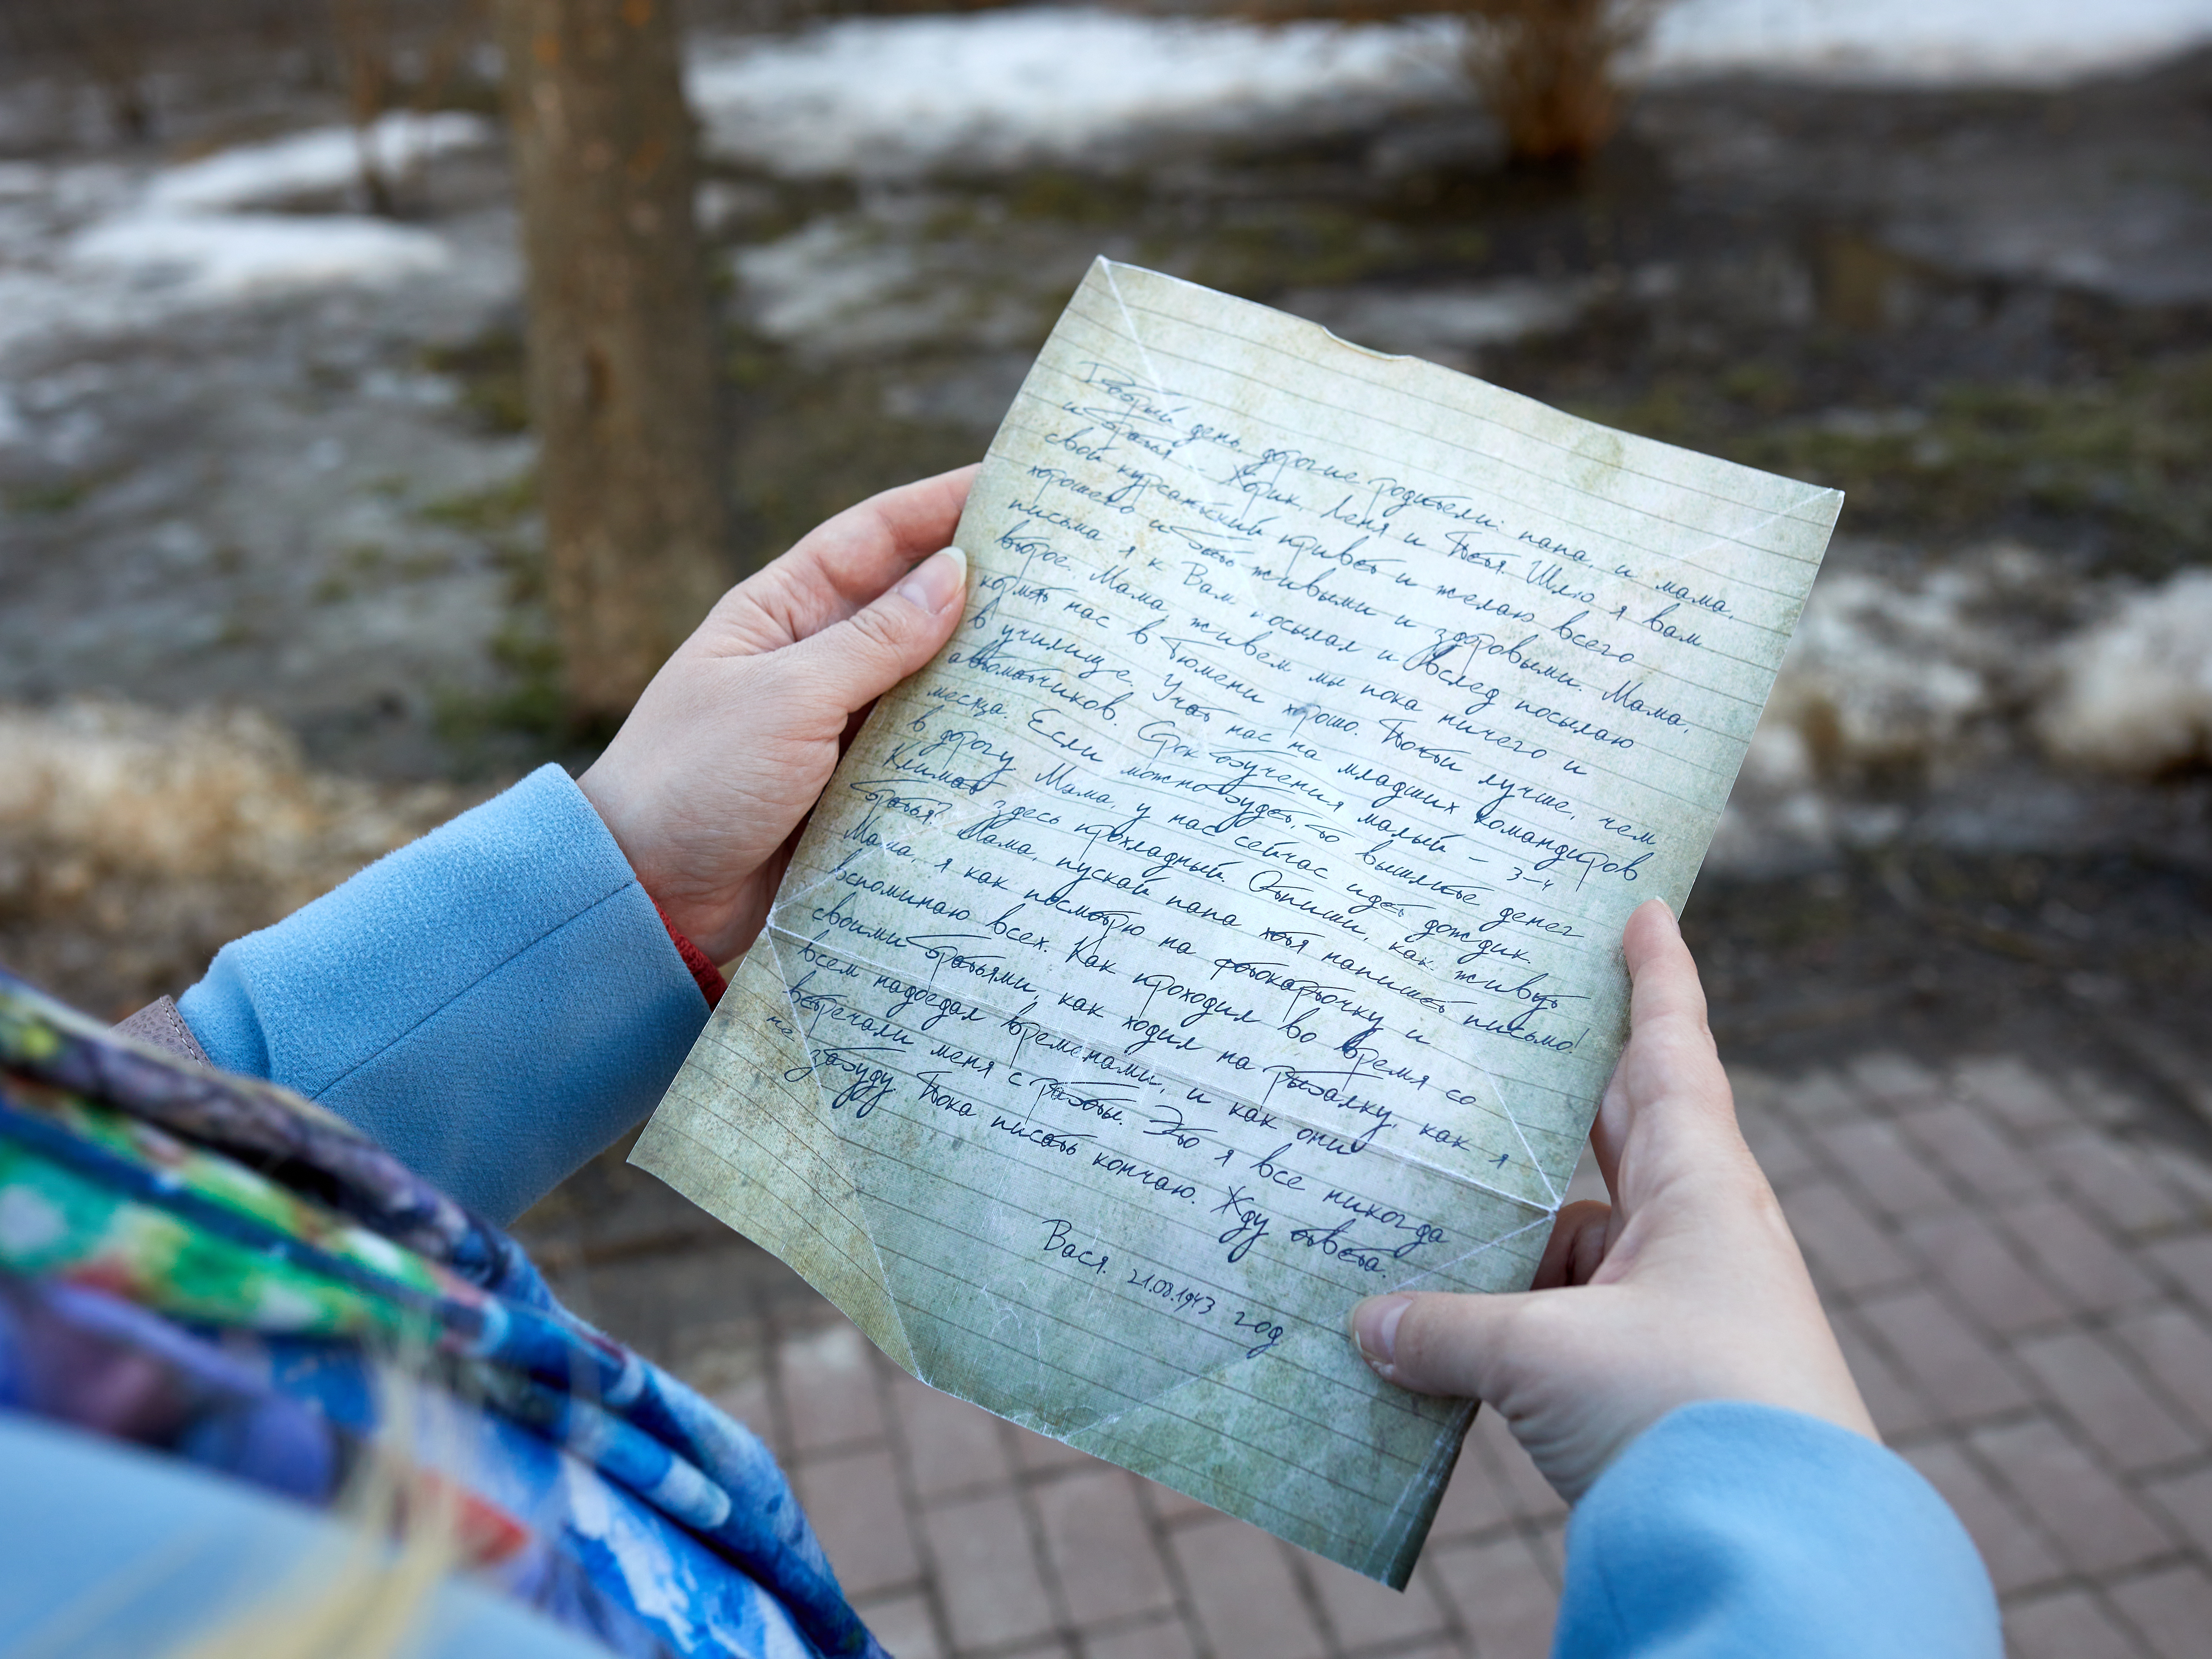 Добрый день, дорогие родители: папа, и мама,
и братья Юрик, Леня и Петя. Шлю я вам
свой курсантский привет и желаю всего
хорошего и быть живыми и здоровыми. Мама,
письма я к Вам посылал и вслед посылаю
второе. Мама, живем мы пока ничего и
кормят нас в Тюмени хорошо. Почти лучше, чем
в училище. Учат нас на младших командиров
автоматчиков. Срок обучения малый – 3-4
месяца. Если можно будет, то вышлите денег
в дорогу. Мама, у нас сейчас идет дождик.
Климат здесь прохладный. Отпиши, как живут
братья? Мама, пускай папа хотя напишет письмо!
Мама, я как посмотрю на фотокарточку и
вспоминаю всех. Как проходил во время со
своими братьями, как ходил на рыбалку, как я
всем надоедал временами, и как они
встречали меня с работы. Это я все никогда
не забуду. Пока писать кончаю. Жду ответа.
Вася. 21.08.1943 год